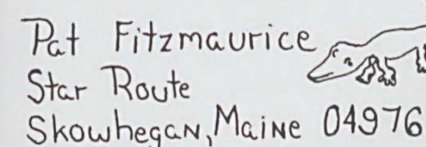 Pat Fitzmaurice
Star Route
Skowhegan, Maine 04976